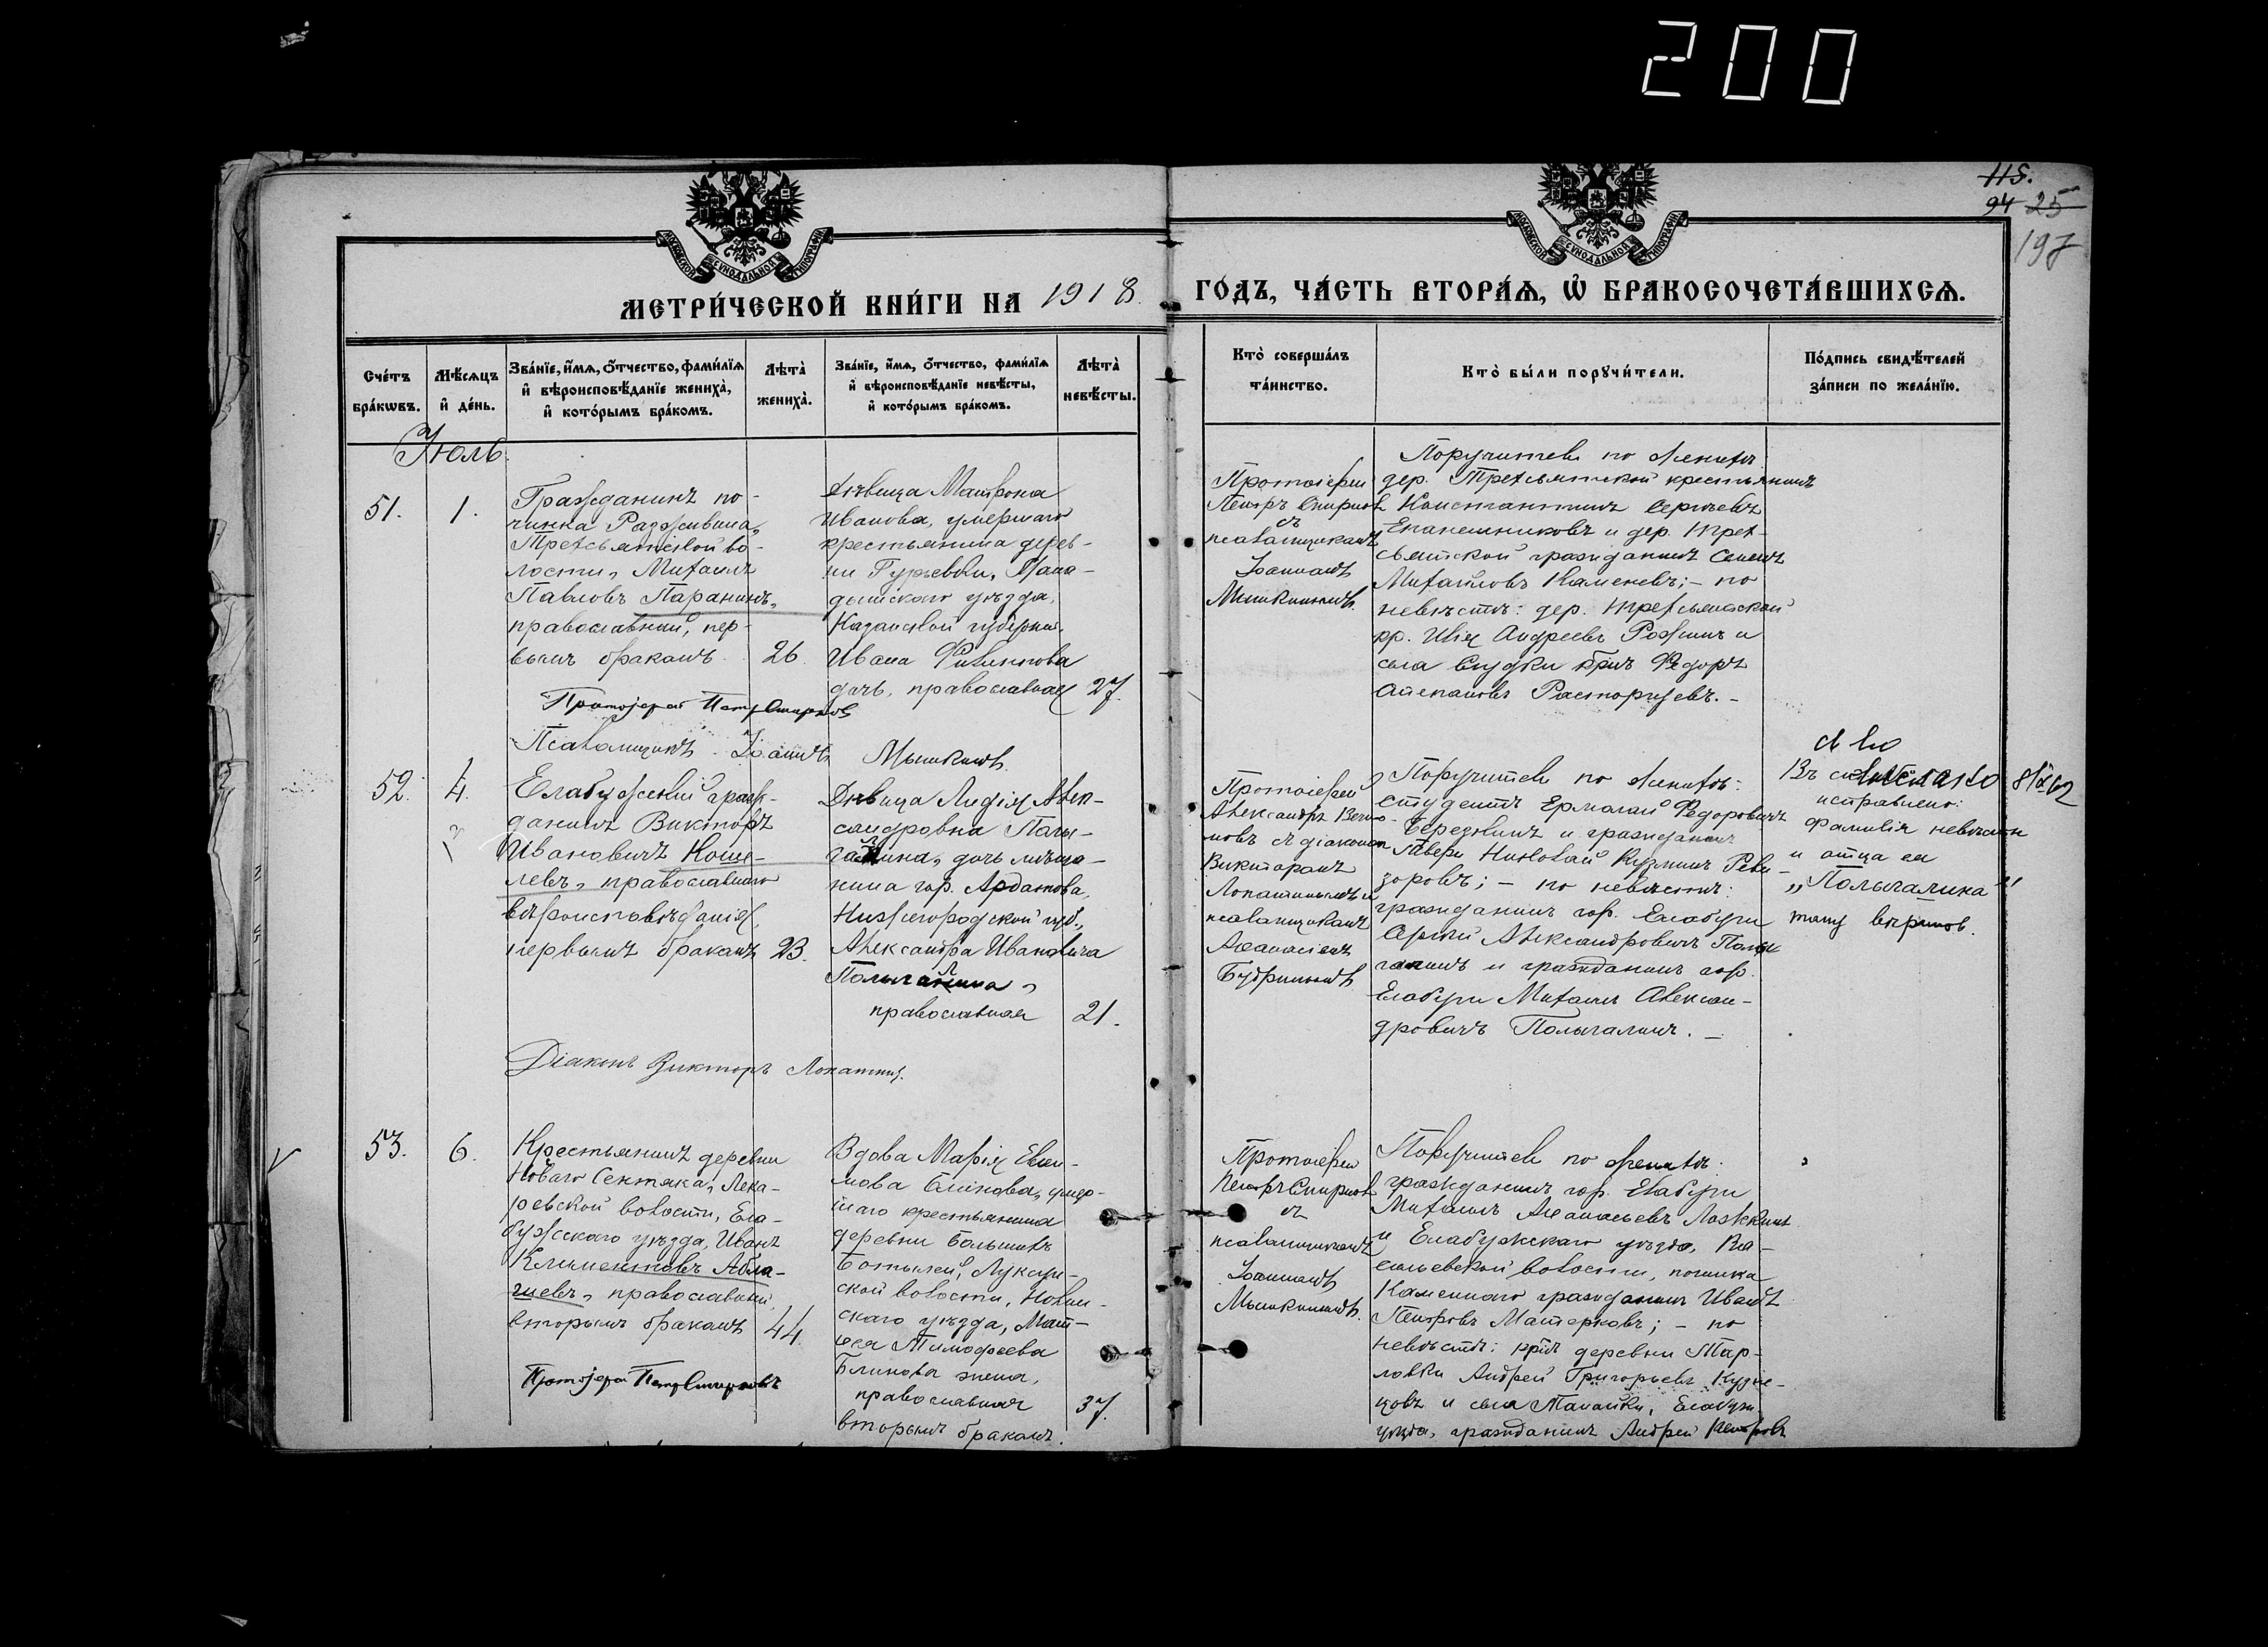 200
115.
94 25
197
МОСКОВСКОЙ СѴНОДАЛЬНОЙ ТИПОГРАФІИ
МОСКОВСКОЙ СѴНОДАЛЬНОЙ ТИПОГРАФІИ
МЕТРИ́ЧЕСКОЙ КНИ́ГИ НА 1918.
ГО́ДЪ, ЧА́СТЬ ВТОРА́Ѧ, Ѡ҆ БРАКОСОЧЕТА́ВШИХСѦ.
Сче́тъ
бра́кѡвъ.
Мѣ́сѧцъ
и҆ де́нь.
Зва́нїе, и҆́мѧ, ѻ҆́тчество, фами́лїѧ
и҆ вѣроисповѣ́данїе жениха̀,
и҆ кото́рымъ бра́комъ.
Лѣта̀
жениха̀.
Зва́нїе, и҆́мѧ, ѻ҆́тчество, фами́лїѧ
и҆ вѣроисповѣ́данїе невѣ́сты,
и҆ кото́рымъ бра́комъ.
Лѣта̀
невѣ́сты.
Кто̀ соверша́лъ
та́инство.
Кто̀ бы́ли порꙋчи́тели.
По́дпись свидѣ́телей
за́писи по жела́нїю.
Іюль
51.
1.
Гражданинъ по-
чинка Разживина,
Трехсвятской во-
лости, Михаилъ
Павловъ Паранинъ,
православный, пер-
вымъ бракомъ.
26.
Дѣвица Матрона
Иванова, умершаго
крестьянина дерев-
ни Гурьевки, Мама-
дышскаго уѣзда,
Казанской губерніи,
Ивана Филиппова
дочь, православная
27.
Протоіерей Петръ Спирковъ
Псаломщикъ Іоаннъ Мышкинъ.
Протоіерей
Петръ
съ
псаломщикомъ
Іоанномъ
Мышкинымъ.
Поручители по женихѣ:
дер. Трехсвятской крестьянинъ
Константинъ Сергѣевъ
Епанешниковъ и дер. Трех-
святской гражданинъ Семенъ
Михайловъ Каменевъ; – по
невѣстѣ: дер. Трехсвятской
гр. Андреевъ Рожинъ и
села кр-нъ Федоръ
Степановъ Расторгуевъ. –
52.
4.
Елабужскій граж-
данинъ Викторъ
Ивановичъ Коше-
левъ, православнаго
вѣроисповѣданія,
первымъ бракомъ
23.
Дѣвица Лидія Алек-
сандровна Полы-
галина, дочь мѣща-
нина гор. Ардатова,
Нижегородской губ.,
Александра Ивановича
Полыгалина,
православная
21.
Діаконъ Викторъ Лопатинъ.
Протоіерей
Александръ
съ діакономъ
Викторомъ
Лопатинымъ и
псаломщикомъ
Поручители по женихѣ:
студентъ Ермолай Федоровичъ
и гражданинъ
Николай Кузмичъ Реви-
зоровъ; – по невѣстѣ:
гражданинъ гор. Елабуги
Сергѣй Александровичъ Полы-
галинъ и гражданинъ гор.
Елабуги Михаилъ Алексан-
дровичъ Полыгалинъ. –
исправлено:
фамилія невѣсты
и отца ея
„Полыгалина“
тому вѣрить.
53.
6.
Крестьянинъ деревни
Новаго Сентяка, Лека-
ревской волости, Ела-
бужскаго уѣзда, Иванъ
Климентовъ Абла-
гиевъ, православный,
вторымъ бракомъ
44.
Протоіерей Петръ Спирковъ
Вдова Марія
Блинова, умер-
шаго крестьянина
деревни Большихъ
волости, Нолин-
скаго уѣзда, Мат-
ѳея Тимофеева
Блинова жена,
православная
вторымъ бракомъ.
37.
Протоіерей
Петръ
съ
псаломщикомъ
Іоанномъ
Мышкинымъ.
Поручители по женихѣ:
гражданинъ гор. Елабуги
Михаилъ Аѳанасьевъ Ложкинъ
и Елабужскаго уѣзда, Ва-
сильевской волости, починка
Каменнаго гражданинъ Иванъ
Петровъ Матерковъ; – по
невѣстѣ: кр-нъ деревни Тар-
ловки Андрей Григорьевъ Кузне-
цовъ и села Танайки, Елабуж.
уѣзда, гражданинъ Андрей Петровъ